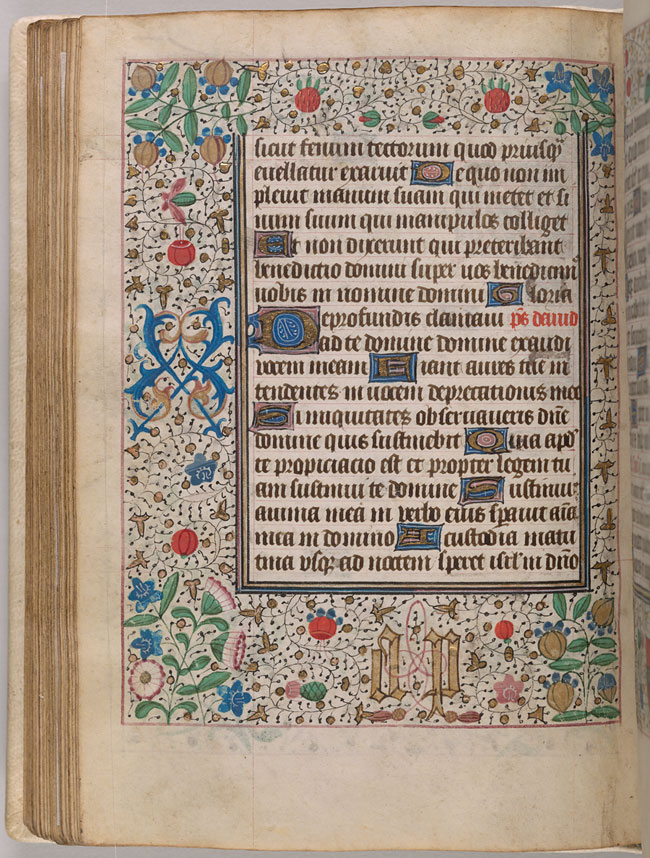 sicut fenum tectorum quod priusq̃
evellatur exaruit De quo non im
plevit manum suam qui metet et si
num suum qui manipulos colliget
Et non dixerunt qui preteribant
benedictio domini super vos benediximꝰ
vobis in nomine domini Gloria
Deprofundis clamavi ps̃ david
ad te domine domine exaudi
vocem meam Fiant aures tue in
tendentes in vocem deprecationis mee
Si iniquitates observaveris dñe
domine quis sustinebit Quia apꝰ
te propiciacio est et propter legem tu
am sustinui te domine Sustinuit
anima mea in verbo eius speravit aĩa
mea in domino A custodia matu
tina usq; ad noctem speret isrl̃ in dño